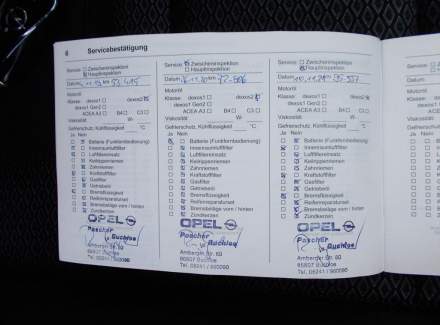 6 Servicebestätigung
Service: Zwischeninspektion
Hauptinspektion
Datum
Motoröl
Klasse: dexos1 dexos2
dexos1 Gen2
ACEA A3 B4 C3
Viskosität W-
Gefrierschutz, Kühlflüssigkeit °C
Ja Nein
Batterie (Funktionsbedienung)
Innenraumluftfilter
Luftfiltereinsatz
Keilrippenriemen
Zahnriemen
Kraftstofffilter
Gasfilter
Getriebeöl
Bremsflüssigkeit
Reifenreparaturset
Bremsbeläge vorn / hinten
Zündkerzen
OPEL
Poscher
Buchloe
Amberger Str. 60
86807 Buchloe
Service: Zwischeninspektion
Hauptinspektion
Datum
Motoröl
Klasse: dexos1 dexos2
dexos1 Gen2
ACEA A3 B4 C3
Viskosität W-
Gefrierschutz, Kühlflüssigkeit °C
Ja Nein
Batterie (Funktionsbedienung)
Innenraumluftfilter
Luftfiltereinsatz
Keilrippenriemen
Zahnriemen
Kraftstofffilter
Gasfilter
Getriebeöl
Bremsflüssigkeit
Reifenreparaturset
Bremsbeläge vorn / hinten
Zündkerzen
OPEL
Poscher
Buchloe
Amberger Str. 60
86807 Buchloe
Service: Zwischeninspektion
Hauptinspektion
Datum
Motoröl
Klasse: dexos1 dexos2
dexos1 Gen2
ACEA A3 B4 C3
Viskosität W-
Gefrierschutz, Kühlflüssigkeit °C
Ja Nein
Batterie (Funktionsbedienung)
Innenraumluftfilter
Luftfiltereinsatz
Keilrippenriemen
Zahnriemen
Kraftstofffilter
Gasfilter
Getriebeöl
Bremsflüssigkeit
Reifenreparaturset
Bremsbeläge vorn / hinten
Zündkerzen
OPEL
Poscher
Buchloe
Amberger Str. 60
86807 Buchloe